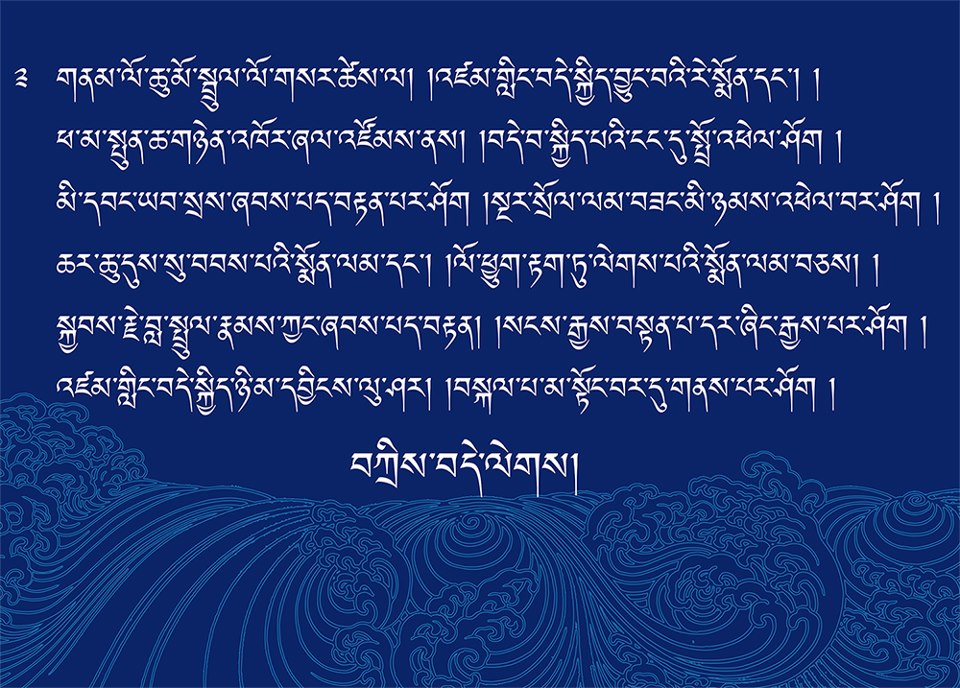 ༣ གནམ་ལོ་ཆུ་མོ་སྦྲུལ་ལོ་གསར་ཚེས་ལ། །འཛམ་གླིང་བདེ་སྐྱིད་བྱུང་བའི་རེ་སྨོན་དང་། །
ཕ་མ་སྤུན་ཆ་གཉེན་འཁོར་ཞལ་འཛོམས་ནས། །བདེ་བ་སྐྱིད་པའི་ངང་དུ་སྤྲོ་འཕེལ་ཤོག །
མི་དབང་ཡབ་སྲས་ཞབས་པད་བརྟན་པར་ཤོག །སྔར་སྲོལ་ལམ་བཟང་མི་ཉམས་འཕེལ་བར་ཤོག །
ཆར་ཆུ་དུས་སུ་བབས་པའི་སྨོན་ལམ་དང་། །ལོ་ཕྱུག་རྟག་ཏུ་ལེགས་པའི་སྨོན་ལམ་བཅས། །
སྐྱབས་རྗེ་བླ་སྤྲུལ་རྣམས་ཀྱང་ཞབས་པད་བརྟན། །སངས་རྒྱས་བསྟན་པ་དར་ཞིང་རྒྱས་པར་ཤོག །
འཛམ་གླིང་བདེ་སྐྱིད་ཉི་མ་དབྱིངས་ལུ་ཤར། །བསྐལ་པ་མ་སྟོང་བར་དུ་གནས་པར་ཤོག །
བཀྲིས་བདེ་ལེགས།